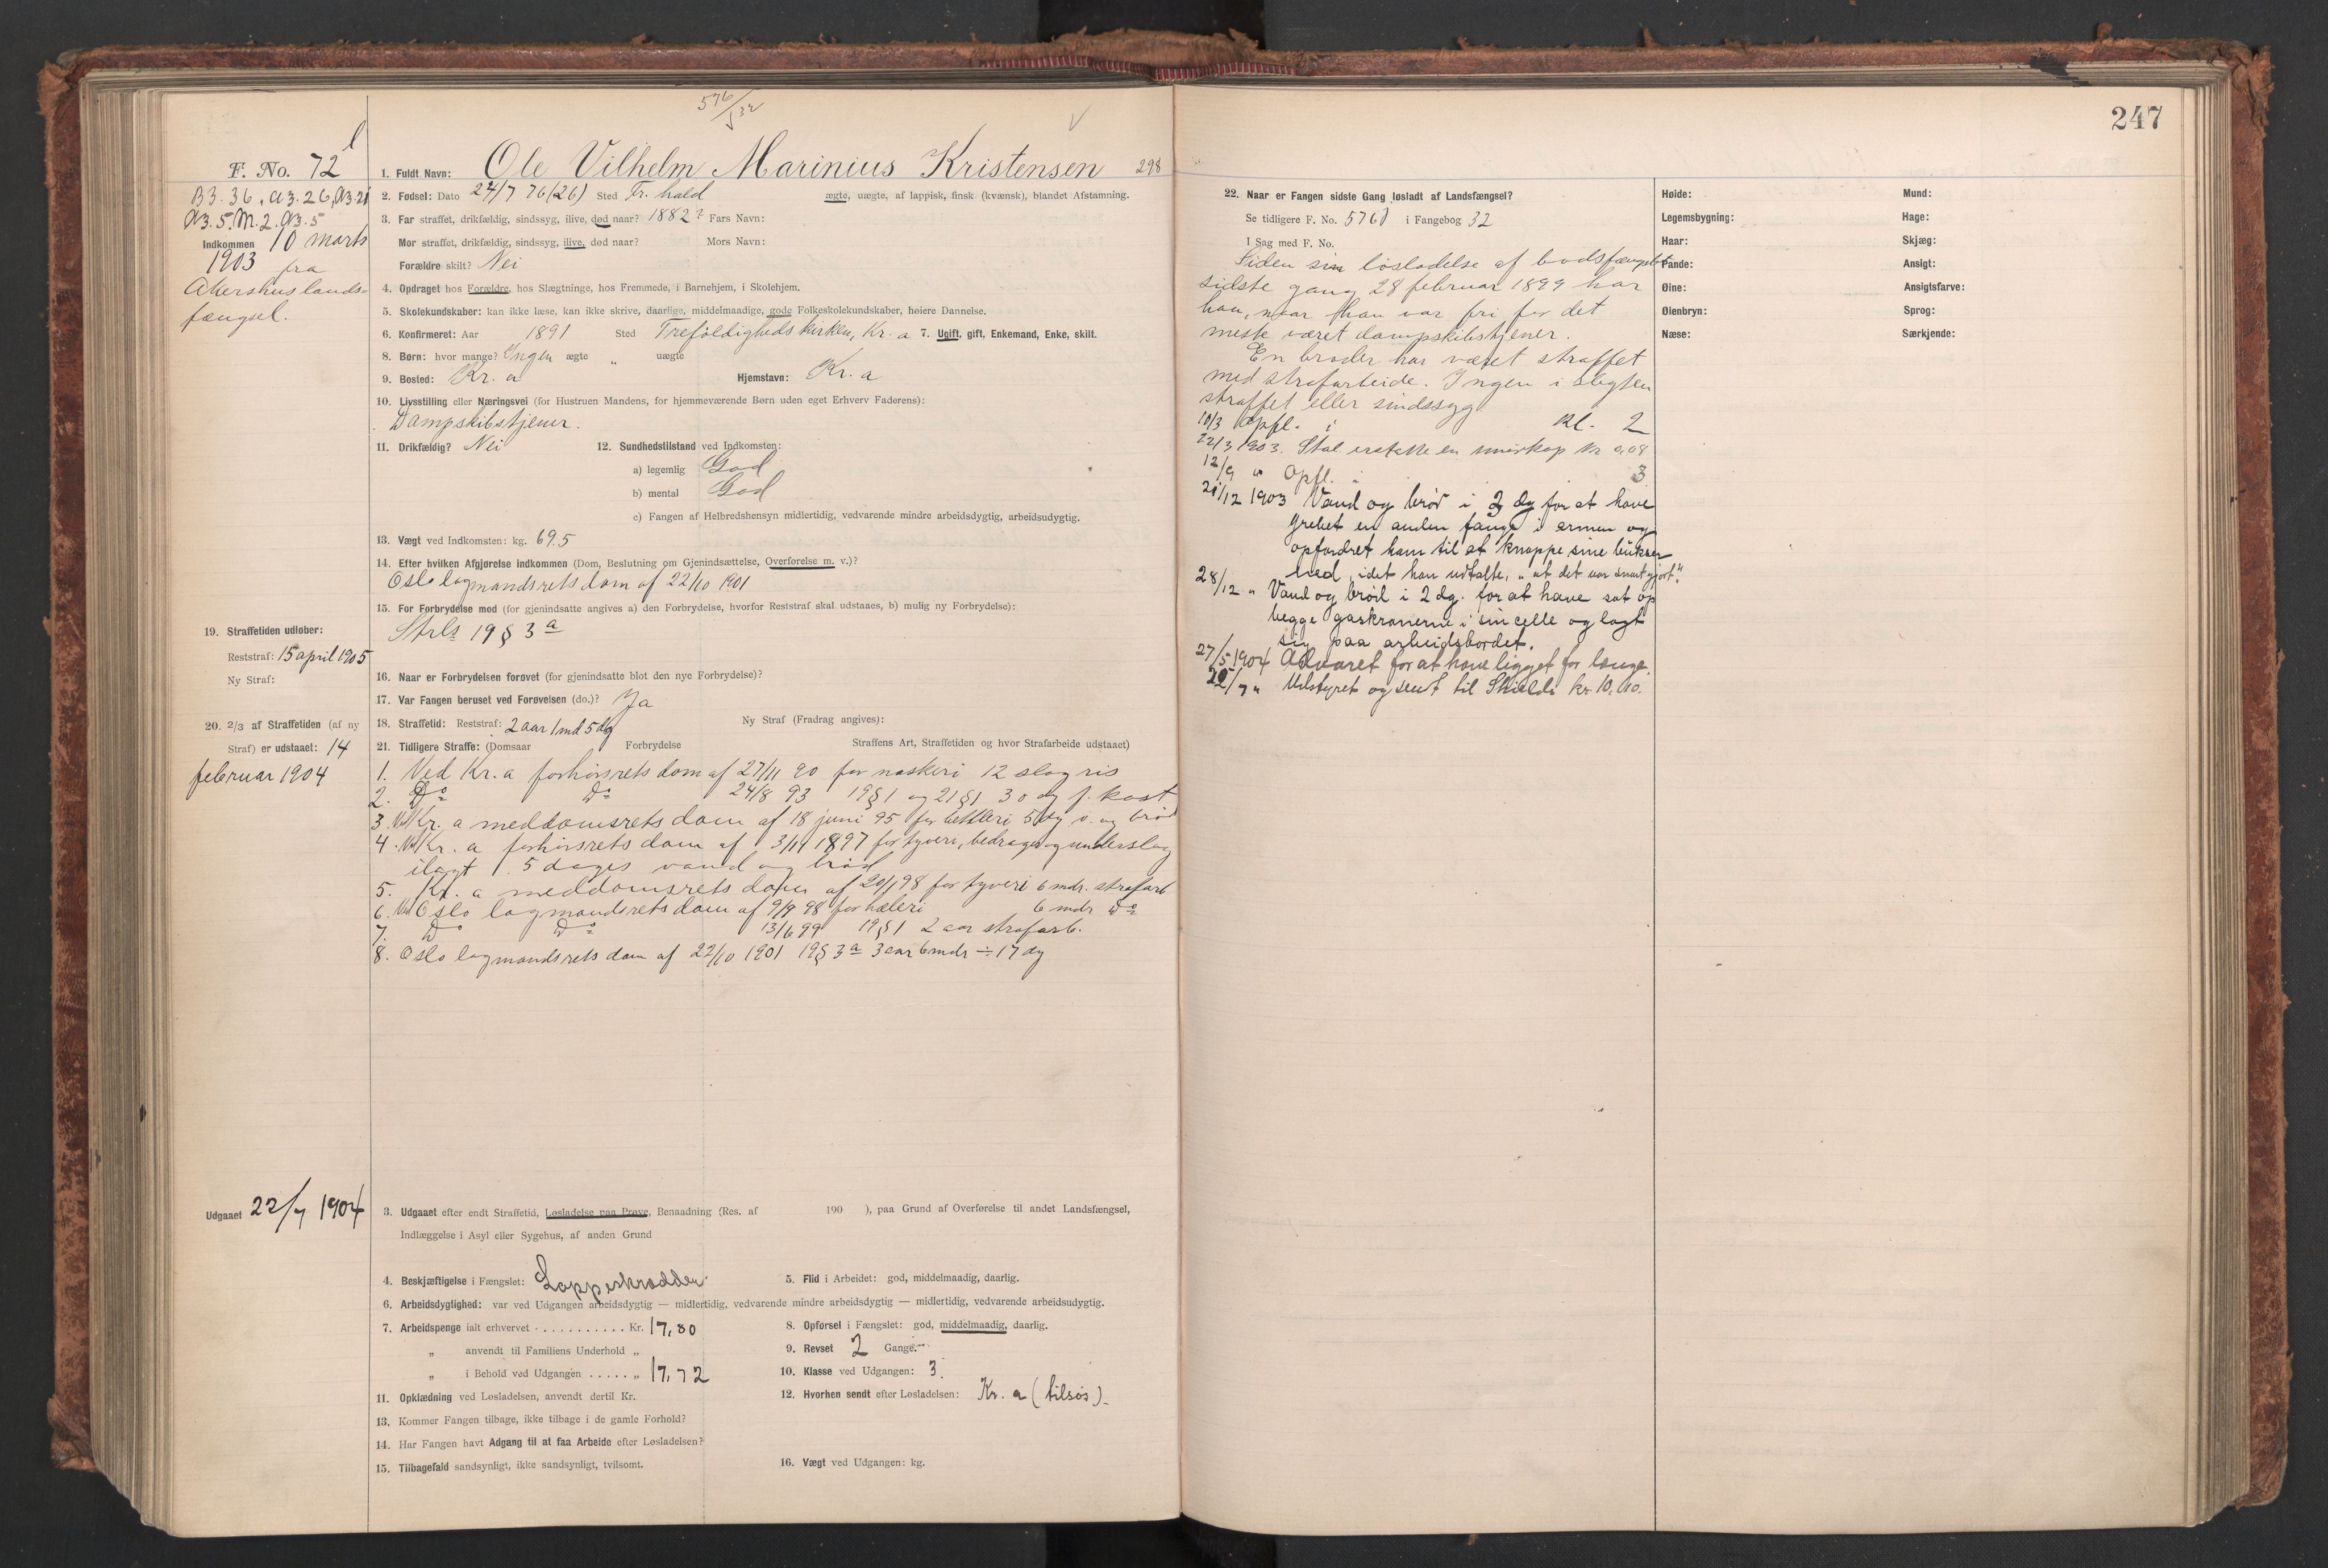 576/32
F. No. 72
B3.36, a3.26, A3.21
A3.5. M.2. A3.5
Indkommen 10 marts
1903 fra
Akershus lands-
fængsel.
1. Fuldt Navn: Ole Vilhelm Marinius Kristensen 298
2. Fødsel: Dato 24/7 76 (26) Sted Fr. hald ægte, uægte, af lappisk, finsk (kvænsk), blandet Afstamning.
3. Far straffet, drikfældig, sindssyg, ilive, død naar? 1882? Fars Navn:
Mor straffet, drikfældig, sindssyg, ilive, død naar? Mors Navn:
Forældre skilt? Nei
4. Opdraget hos Forældre, hos Slægtninge, hos Fremmede, i Barnehjem, i Skolehjem.
5. Skolekundskaber: kan ikke læse, kan ikke skrive, daarlige, middelmaadige, gode Folkeskolekundskaber, høiere Dannelse.
6. Konfirmeret: Aar 1891 Sted Trefoldigheds kirken, Kr. a 7. Ugift, gift, Enkemand, Enke, skilt.
8. Børn: hvor mange? Ingen ægte " uægte
9. Bosted: Kr. a Hjemstavn: Kr. a
10. Livsstilling eller Næringsvei (for Hustruen Mandens, for hjemmeværende Børn uden eget Erhverv Faderens):
Dampskibstjener.
11. Drikfældig? Nei 12. Sundhedstilstand ved Indkomsten:
a) legemlig God
b) mental God
c) Fangen af Helbredshensyn midlertidig, vedvarende mindre arbeidsdygtig, arbeidsudygtig.
13. Vægt ved Indkomsten: kg. 69.5
14. Efter hvilken Afgjørelse indkommen (Dom, Beslutning om Gjenindsættelse, Overførelse m. v.)?
Oslo lagmandsrets dom af 22/10 1901
15. For Forbrydelse mod (for gjenindsatte angives a) den Forbrydelse, hvorfor Reststraf skal udstaaes, b) mulig ny Forbrydelse):
Strl. 19 § 3 a
16. Naar er Forbrydelsen forøvet (for gjenindsatte blot den nye Forbrydelse)?
17. Var Fangen beruset ved Forøvelsen (do.)? Ja
18. Straffetid: Reststraf: 2 aar 1 md 5 dg Ny Straf (Fradrag angives):
19. Straffetiden udløber:
Reststraf: 15 april 1905
Ny Straf:
20. 2/3 af Straffetiden (af ny
Straf) er udstaaet: 14
februar 1904
21. Tidligere Straffe: (Domsaar Forbrydelse Straffens Art, Straffetiden og hvor Strafarbeide udstaaet)
1. Ved Kr. a forhørsrets dom af 27/11 90 for naskeri 12 slag ris
2. Do Do 24/8 93 19 § 1 og 21 § 1 30 dg f. kost
3. Ved Kr. a meddomsrets dom af 18 juni 95 for betleri 5 dg v. og brød
4. Ved Kr. a forhørsrets dom af 3/11 1897 for tyveri, bedrageri og underslag
ilagt 5 dages vand og brød
5. Kr. a meddomsrets dom af 20/1 98 for tyveri 6 mdr. strafarb
6. Ved Oslo lagmandsrets dom af 9/9 98 for hæleri 6 mdr Do
7. Do Do 13/6 99 19 § 1 2 aar strafarb.
8. Oslo lagmandsrets dom af 22/10 1901 19 § 3 a 3 aar 6 mdr ÷ 17 dg
Udgaaet 22/7 1904
3. Udgaaet efter endt Straffetid, Løsladelse paa Prøve, Benaadning (Res. af 190 ), paa Grund af Overførelse til andet Landsfængsel,
Indlæggelse i Asyl eller Sygehus, af anden Grund
4. Beskjæftigelse i Fængslet: Lappeskrædder 5. Flid i Arbeidet: god, middelmaadig, daarlig.
6. Arbeidsdygtighed: var ved Udgangen arbeidsdygtig — midlertidig, vedvarende mindre arbeidsdygtig — midlertidig, vedvarende arbeidsudygtig.
7. Arbeidspenge ialt erhvervet . . . . . . . . . . . Kr. 17,80 8. Opførsel i Fængslet: god, middelmaadig, daarlig.
" anvendt til Familiens Underhold " 9. Revset 2 Gange.
" i Behold ved Udgangen . . . . . " 17,72 10. Klasse ved Udgangen: 3.
11. Opklædning ved Løsladelsen, anvendt dertil Kr. 12. Hvorhen sendt efter Løsladelsen: Kr. a (tilsøs).
13. Kommer Fangen tilbage, ikke tilbage i de gamle Forhold?
14. Har Fangen havt Adgang til at faa Arbeide efter Løsladelsen?
15. Tilbagefald sandsynligt, ikke sandsynligt, tvilsomt. 16. Vægt ved Udgangen: kg.
247
22. Naar er Fangen sidste Gang løsladt af Landsfængsel?
Se tidligere F. No. 576 i Fangebog 32
I Sag med F. No.
Siden sin løsladelse af bodsfængslet
sidste gang 28 februar 1899 har
han, naar han var fri for det
meste været dampskibstjener.
En broder har været straffet
med strafarbeide. Ingen i slegten
straffet eller sindssyg.
10/3 Opfl. i Kl. 2
22/3 1903. Skal erstatte en smørkop Kr 0,08
12/9 " Opfl. " 3
21/12 1903 Vand og brød i 3 dg for at have
grebet en anden fange i armen og
opfordret ham til at knappe sine bukser
ned, idet han udtalte, "at det var snart gjort".
28/12 " Vand og brød i 2 dg. for at have sat op
begge gaskranerne i sin celle og lagt
sig paa arbeidsbordet.
27/5 1904 Advaret for at have ligget for længe.
22/7 " Udstyret og sendt til Skields kr. 10,00.
Høide: Mund:
Legemsbygning: Hage:
Haar: Skjæg:
Pande: Ansigt:
Øine: Ansigtsfarve:
Øienbryn: Sprog:
Næse: Særkjende: